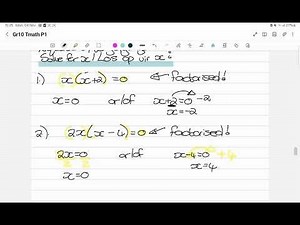 Gr10 Tmath P1
Solve for x / Los op vir x:
1) x(x+2)=0 factorised!
x=0 or/of x+2=0 -2
x=-2
2) 2x(x-4)=0 factorised!
2x=0 or/of x-4=0 +4
x=0 x=4